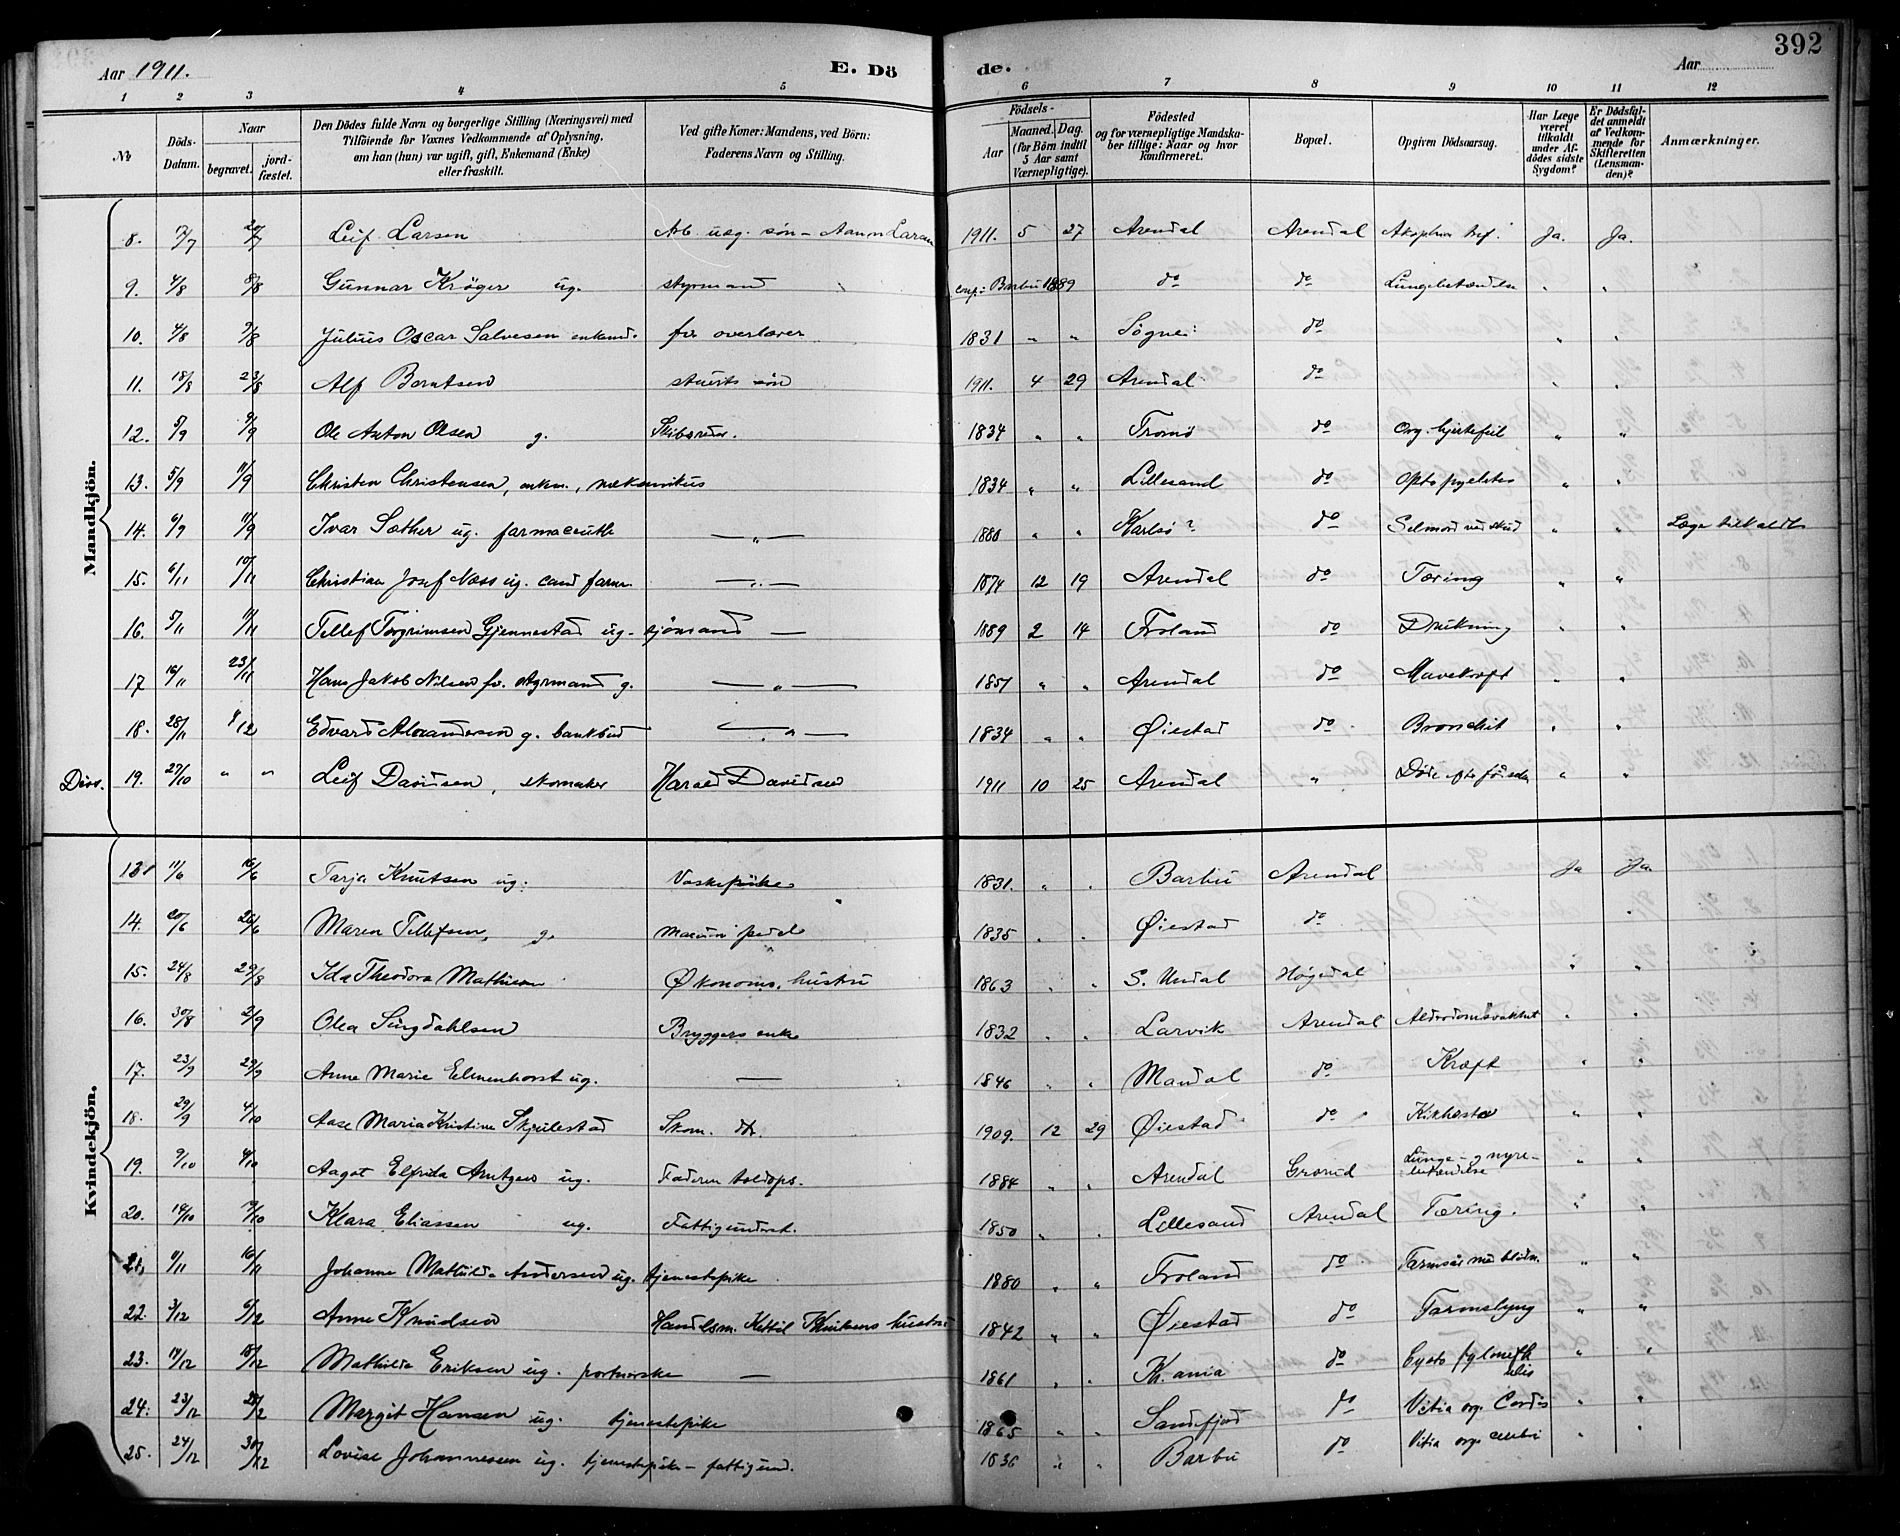 392
Aar 1911. E. Dö de. Aar
1 2 3 4 5 6 7 8 9 10 11 12
No Döds-Datum. Naar begravet. jordfæstet. Den Dödes fulde Navn og borgerlige Stilling (Næringsvei) med Tilföiende for Voxnes Vedkommende af Oplysning, om han (hun) var ugift, gift, Enkemand (Enke) eller fraskilt. Ved gifte Koner: Mandens, ved Börn: Faderens Navn og Stilling. Födsels- Aar Maaned. Dag. (for Börn indtil 5 Aar samt Værnepligtige). Födested og for værnepligtige Mandskaber tillige: Naar og hvor konfirmeret. Bopæl. Opgiven Dödsaarsag. Har Læge været tilkaldt under Afdödes sidste Sygdom? Er Dödsfaldet anmeldt af Vedkommende for Skifteretten (Lensmanden)? Anmærkninger.
Mandkjön.
8. 20/7 Leif Larsen Arb. søn 1911. 5 27 Arendal Arendal Ja. Ja.
9. 4/8 8/8 Gunnar Krøger ug. styrmand conf: Barbu 1889 do do Lungebetændelse " "
10. 4/8 9/8 Julius Oscar Salvesen enkemd. fv. overlærer 1831 " " Søgne do " "
11. 18/8 23/8 Alf Berntsen stuerts søn 1911. 4 29 Arendal do " "
12. 5/9 9/9 Ole Anton Olsen g. 1834 " " Tromø do Org. hjertefeil " "
13. 5/9 11/9 Christen Christensen, enkm., mekanikus 1834 " " Lillesand do " "
14. 6/9 11/9 Ivar Sæther ug. farmaceut —"— 1880 " " Karlsø? do Selmord ved skud " " Læge tilkaldt
15. 6/11 10/11 Christian Josef Næss ug. cand farm. —"— 1874 12 19 Arendal do Tæring " "
16. 5/11 11/11 Tellef Torgrimsen Gjennestad ug. sjømand — 1889 2 14 Froland do Drukning " "
17 16/11 23/11 Hans Jakob Nilsen fv. styrmand g. —"— 1851 " " Arendal do Mavekræft " "
18. 28/11 4/12 Edvard Alexandersen g. bankbud —"— 1834 " " Øiestad do. Bronchit " "
Diss. 19. 27/10 " " Leif Davidsen, skomaker Harald Davidsen 1911 10 25 Arendal " Døde efter fødselen " "
Kvindekjön.
13. 11/6 16/6 Tarja Knutsen ug. Vaskepike 1831. " " Barbu Arendal Ja Ja.
14. 20/6 26/6 Maren Tellefsen, g. 1835 " " Øiestad do "
15. 24/8 29/8 Ida Theodora Mathisen Økonoms. hustru 1863 " " S. Undal Høgedal " "
16. 30/8 2/9 Olea Singdahlsen Bryggers enke 1832 " " Larvik Arendal Alderdomssvakhet " "
17. 23/9 29/9 Anne Marie Elmenhorst ug. — 1846 " " Mandal do Kræft " "
18. 29/9 4/10 Aase Maria Kristine Skjulestad Skom. dtr. 1909. 12 29 Øiestad do Kikhoste " "
19. 9/10 Aagot Elfrida Arntzen ug. Faderen toldops. 1884 " " Arendal Grønd Lunge- og nyrebetændelse " "
20. 14/10 19/10 Klara Eliassen ug. Fattigunderst. 1850 " " Lillesand Arendal Tæring. " "
21. 9/11 16/11 Johanne Mathilde Andersen ug. tjenestepike 1880 " " Froland do Tarmsår med blødn. " "
22. 3/12 9/12 Anne Knudsen Handelsm. Kittil Knudsens hustru 1842 " " Øiestad do Tarmslyng " "
23. 14/12 18/12 Mathilde Eriksen ug. portnerske — 1861 " " Kr.ania do " "
24. 23/12 28/12 Margit Hansen ug. tjenestepike 1865 " " Sandefjord do Vitia org. Cordis " "
25. 24/12 30/12 Lovise Johannessen ug. tjenestepike - fattigund. 1836 " " Barbu do Vitia org. cordis " "